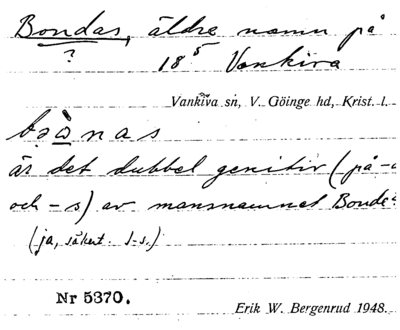 Bondas, äldre namn på
?
18⁵ Vankiva
Vankiva sn, V. Göinge hd, Krist. l.
är det dubbel genitiv (på -a
och -s) av mansnamnet Bonde?
(ja, säkert. I-s.)
Nr 5370.
Erik W. Bergenrud 1948.